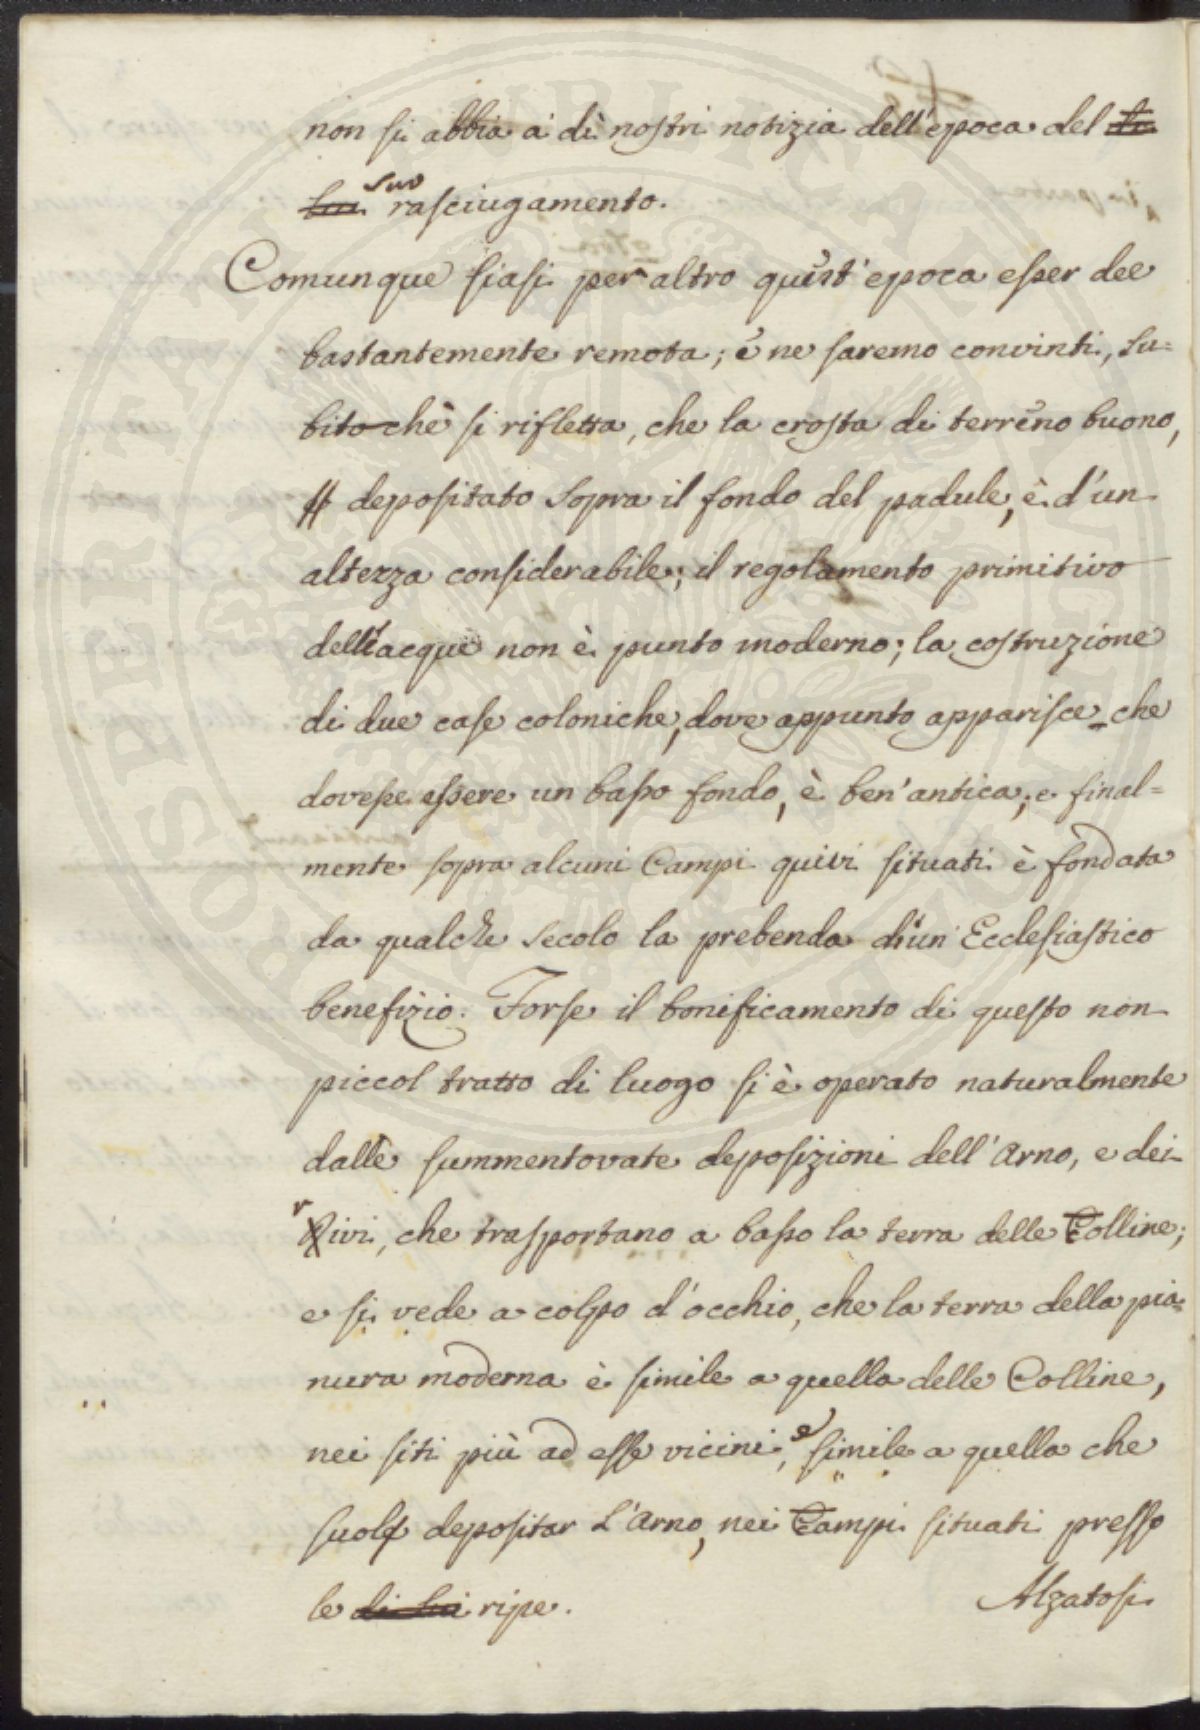 non si abbia a' dì nostri notizia dell'epoca del
suo rasciugamento.
Comunque siasi per altro quest'epoca esser dee
bastantemente remota; e ne saremo convinti, su=
bito chè si rifletta, che la crosta di terreno buono,
depositato sopra il fondo del padule, è d'un
altezza considerabile; il regolamento primitivo
dell'acque non è punto moderno; la costruzione
di due case coloniche, dove appunto apparisce che
dovesse essere un basso fondo, è ben'antica; e final=
mente sopra alcuni Campi quivi situati è fondata
da qualche secolo la prebenda d'un Ecclesiastico
benefizio. Forse il bonificamento di questo non
piccol tratto di luogo si è operato naturalmente
dalle summentovate deposizioni dell'Arno, e dei
rivi, che trasportano a basso la terra delle Colline;
e si vede a colpo d'occhio, che la terra della pia=
nura moderna è simile a quella delle Colline,
nei siti più ad esse vicini, e simile a quella che
suole depositar l'Arno, nei Campi situati presso
le di lui ripe.
Alzatosi
PROSPERITATI PUBLICAE AUGENDAE